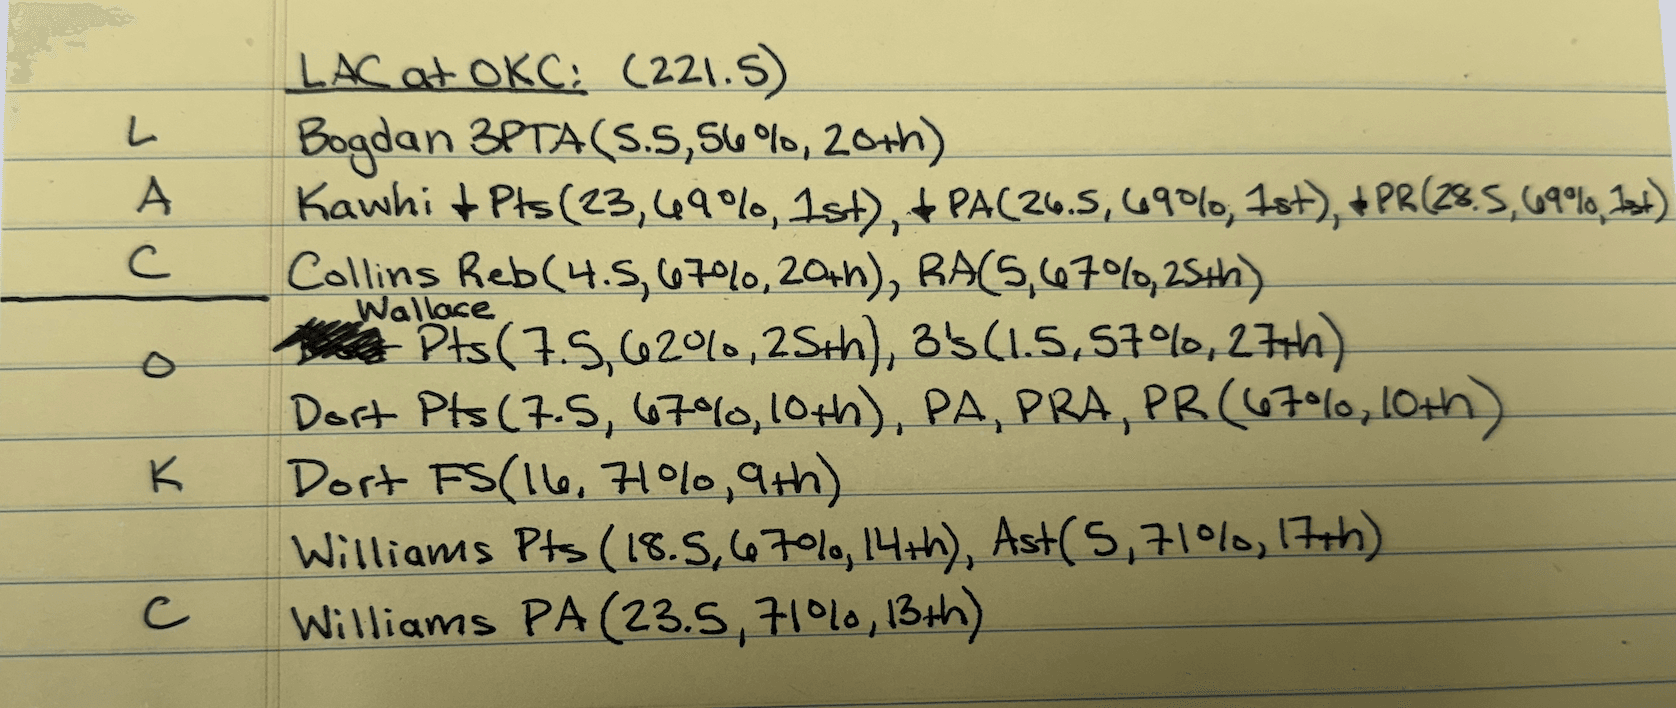 LAC at OKC: (221.5)
L Bogdan 3PTA (5.5, 56%, 20th)
A Kawhi ↓ Pts (23, 69%, 1st), ↓ PA (26.5, 69%, 1st), ↓ PR (28.5, 69%, 1st)
C Collins Reb (4.5, 67%, 20th), RA (5, 67%, 25th)
Wallace
O Pts (7.5, 62%, 25th), 3's (1.5, 57%, 27th)
Dort Pts (7.5, 67%, 10th), PA, PRA, PR (67%, 10th)
K Dort FS (16, 71%, 9th)
Williams Pts (18.5, 67%, 14th), Ast (5, 71%, 17th)
C Williams PA (23.5, 71%, 13th)